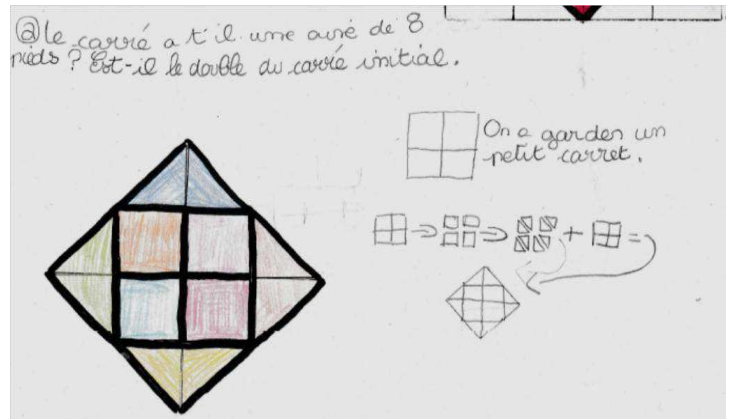 ② le carré a t'il une aire de 8
pieds ? Est-il le double du carré initial.
On a garder un
petit carret.
+
=